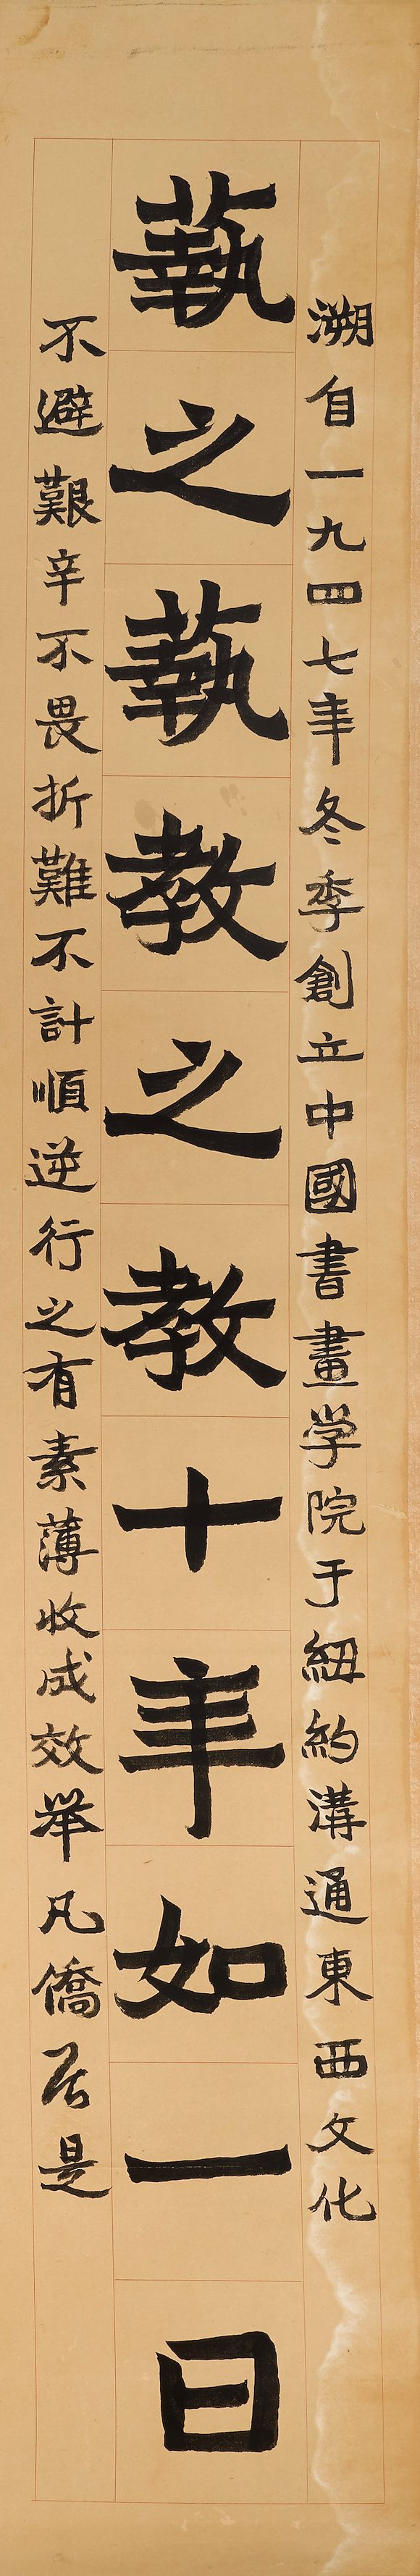 溯自一九四七年冬季創立中國書畫学院于紐約溝通東西文化
藝之藝教之教十年如一日
不避艱辛不畏折難不計順逆行之有素薄收成效举凡僑居是